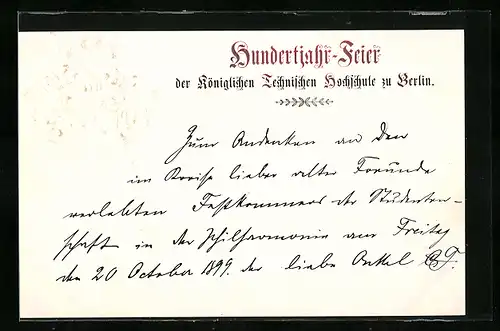 Hundertjahr-Feier
der Königlichen Technischen Hochschule zu Berlin.
Zum Andenken an den
im Kreise lieber alter Freunde
verlebten Festkommers der Studenten-
schaft in der Philharmonie am Freitag
den 20 October 1899. der liebe Onkel